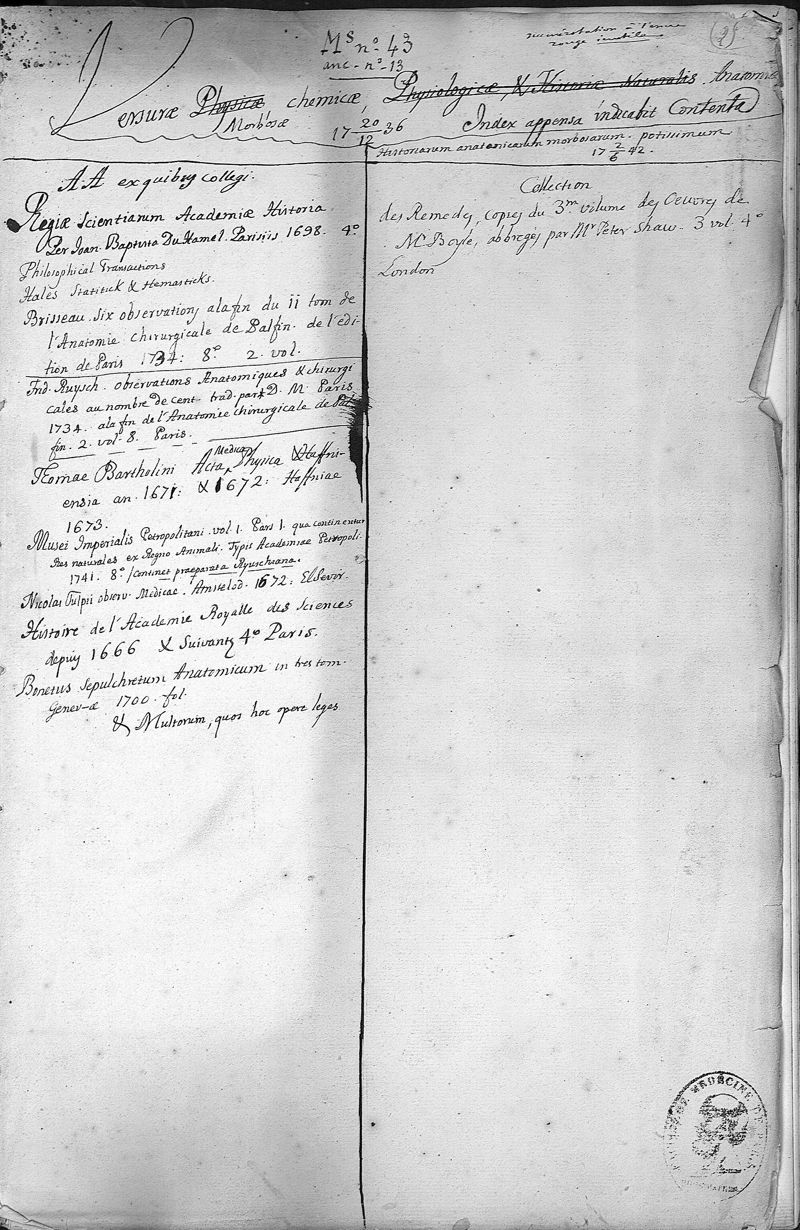 Ms no. 43
anc - no - 13
numérotation à l'encre
rouge inutile
Physicæ, chemicæ, Physiologicæ, & Historiæ Naturalis Anatomicæ
Morbosæ 17 20/12 36 Index appensa indicabit Contenta
Historiarum anatomicarum morbosarum potissimum
17 2/6 42.
AA ex quibus collegi.
Regiæ Scientiarum Academiæ Historia
Per Joan. Baptista Du Hamel. Parisiis 1698. 4o
Philosophical Transactions
Hales Statitick & Hemasticks.
Brisseau. Six observations a la fin du ii tom de
l'Anatomie Chirurgicale de Palfin. de l'edi-
tion de Paris 1734: 8o 2. vol.
Frid. Ruysch. observations Anatomiques & chirurgi
cales au nombre de cent trad. par D. M. Paris
1734. a la fin de l'Anatomie chirurgicale de Pal
fin. 2. vol. 8. Paris.
Tomae Bartholini Acta Medica Physica Haffni-
ensia an. 1671: & 1672: Haffniae
1673.
Musei Imperialis Petropolitani. vol 1. Pars 1. qua continentur
Res naturales ex Regno Animali. Typis Academiae Petropoli.
1741. 8o / Continet praeparata Ruyschiana.
Nicolas Tulpii observ. Medicae. Amstelod. 1672: Elsevir.
Histoire de l'Academie Royalle des Sciences
depuis 1666 & Suivants 4o Paris.
Bonetus Sepulchretum Anatomicum in tres tom.
Genev-æ 1700. fol.
& Multorum, quos hoc opere leges
Collection
des Remedes, copies du 3me volume des Oeuvres de
Mr Boyle, abbreges par Mr Peter Shaw. 3 vol. 4o
London